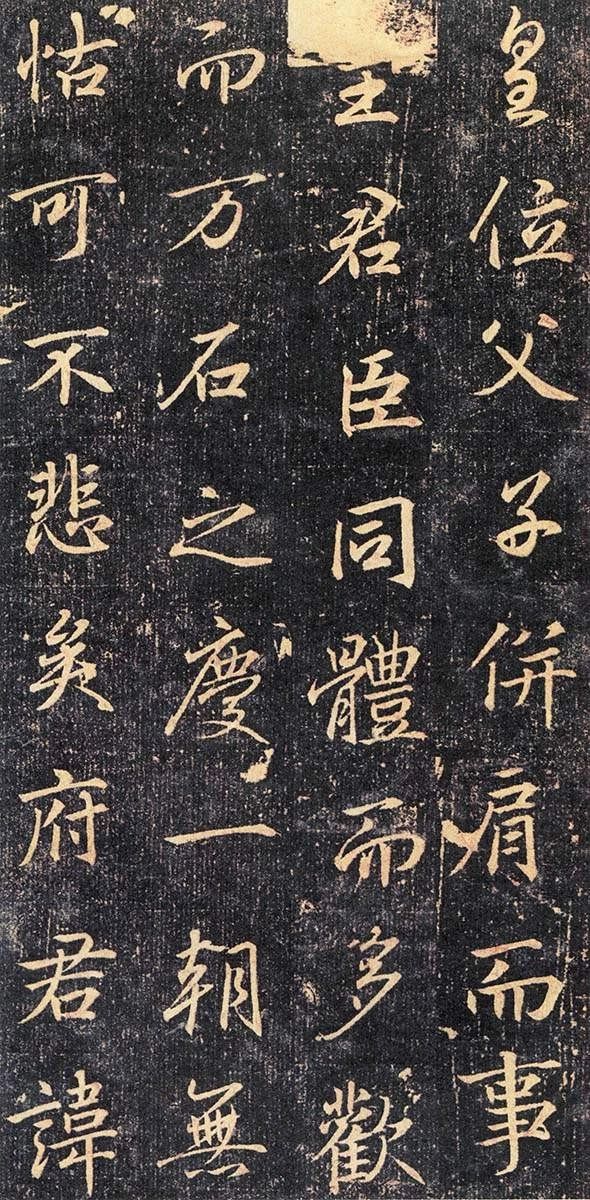 皇位父子併肩而事
主君臣同體而多歡
而万石之慶一朝無
怙可不悲矣府君諱